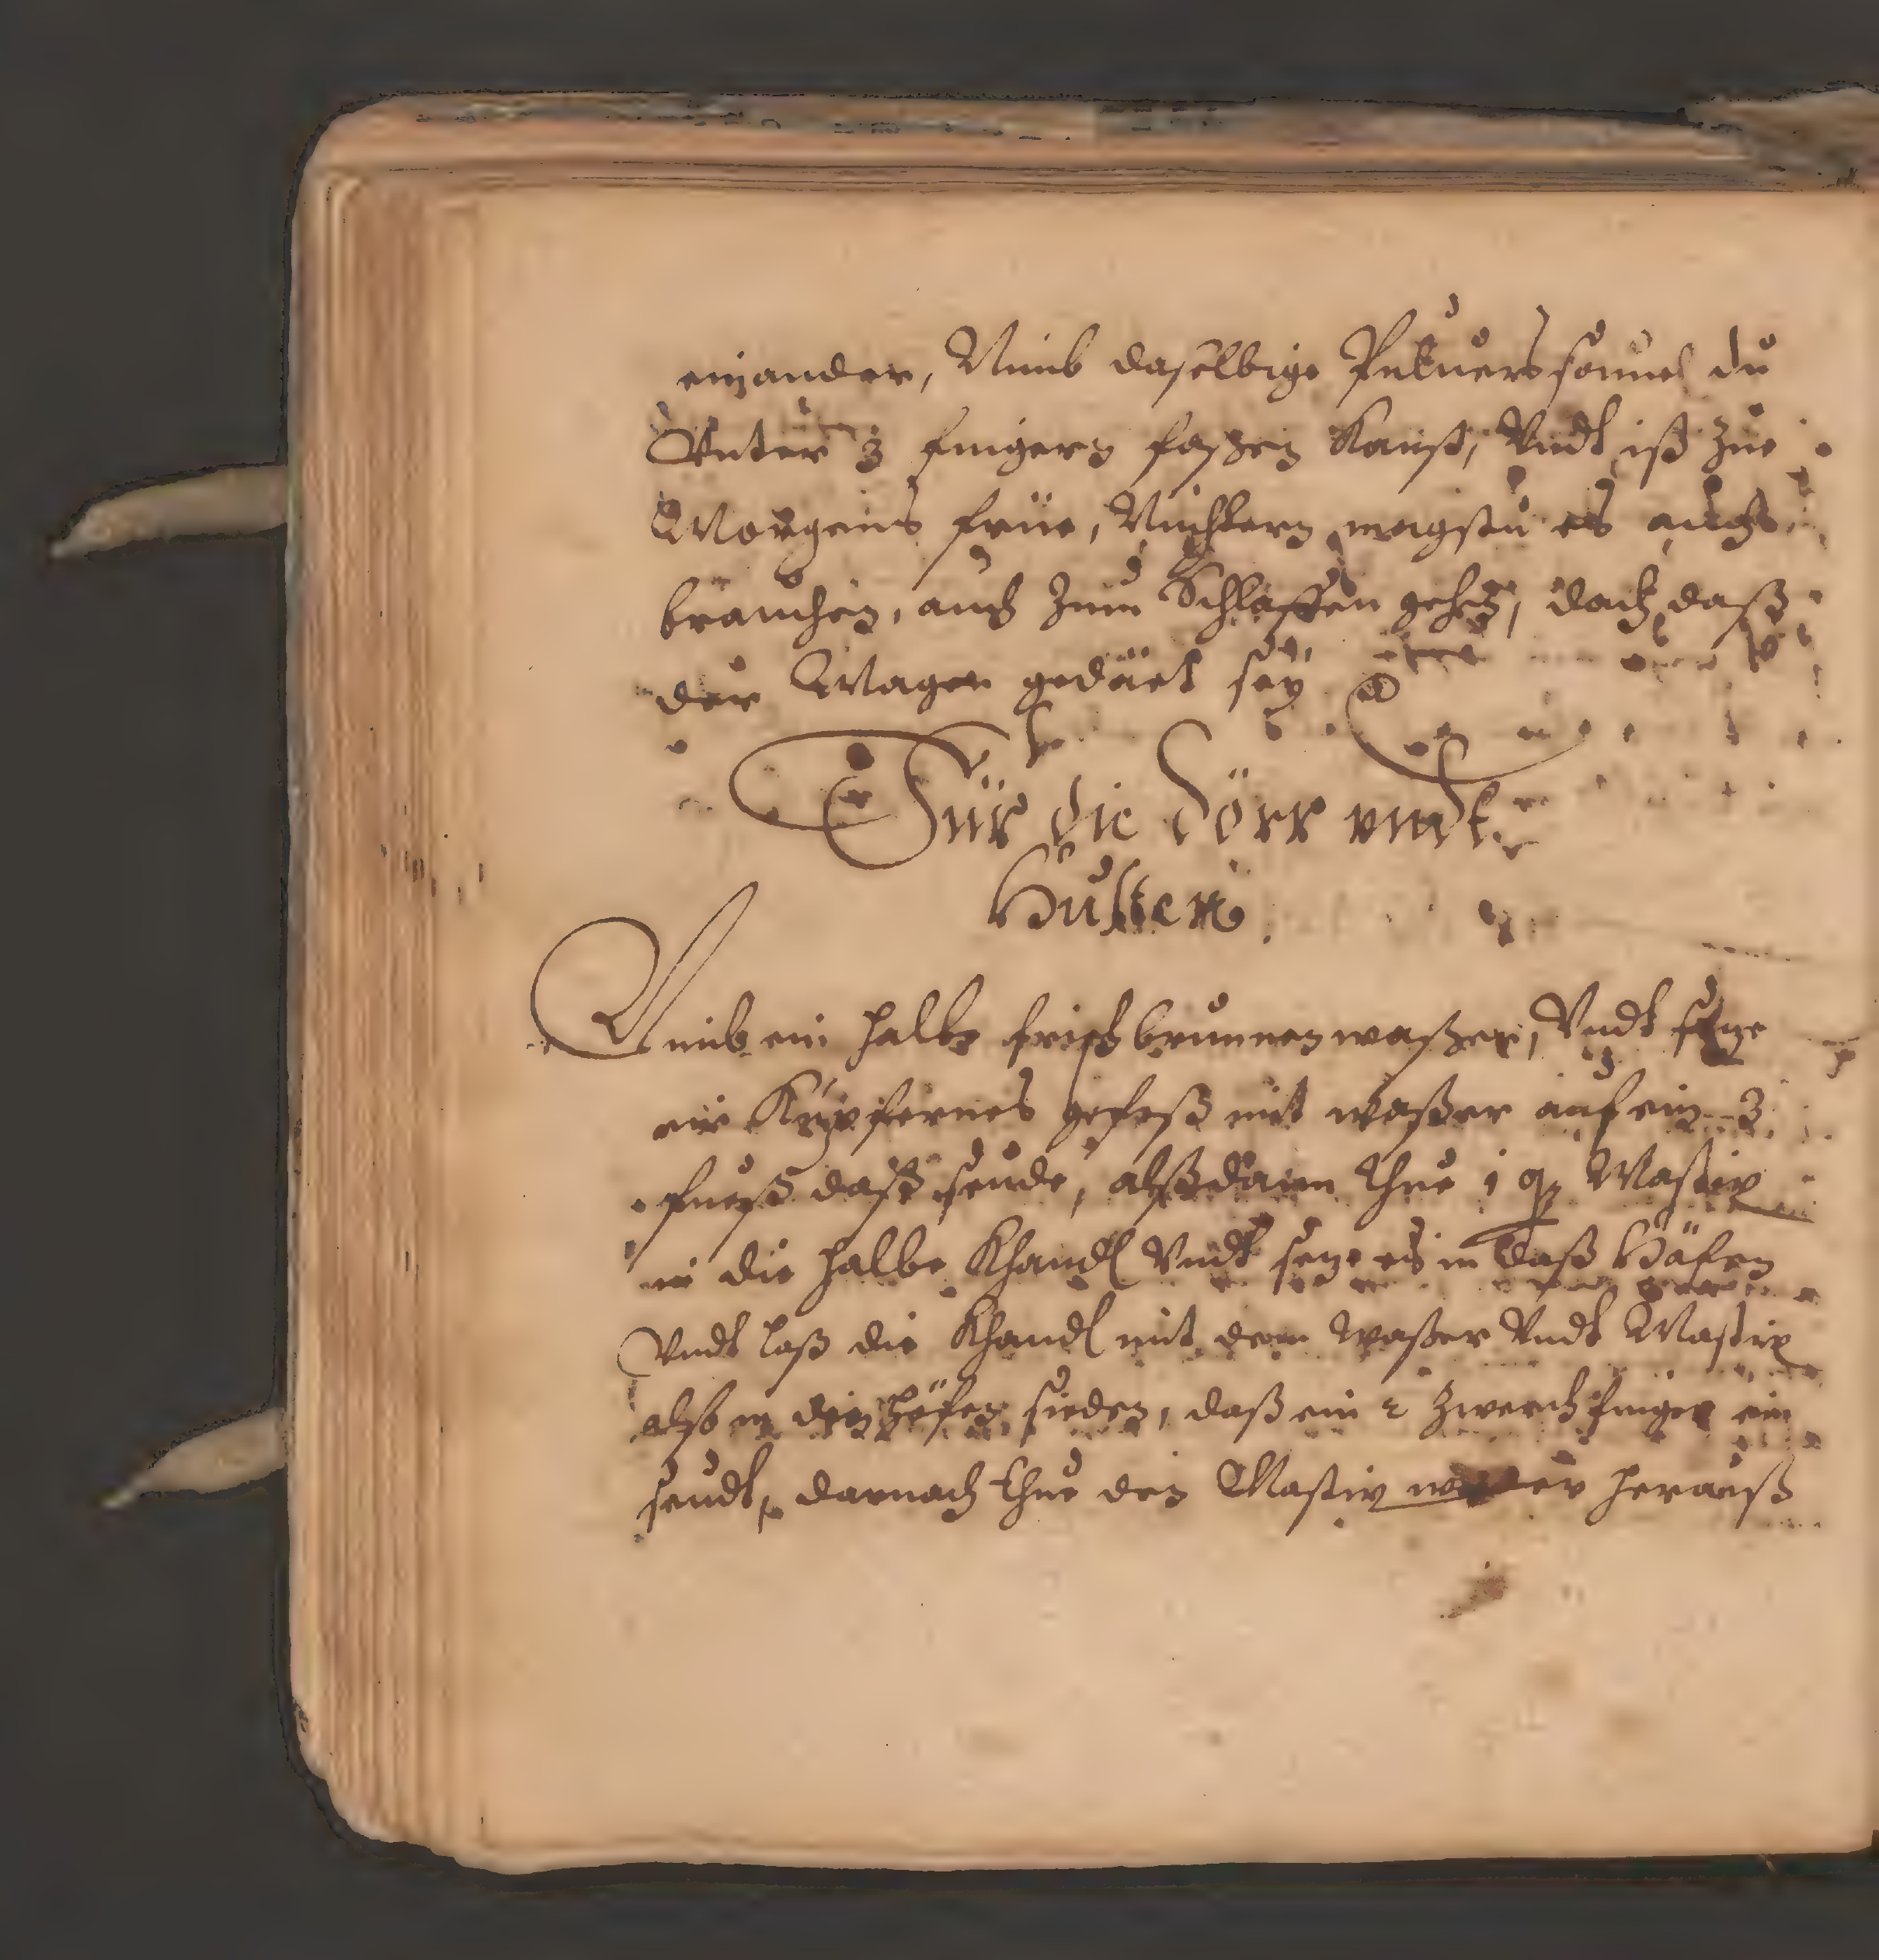 einander, Nimb daselbige Puluers souuel du
Vnter 3 fingern faßen kanst, Vndt iß zue
Morgens früe, Nüchtern magstu es auch
brauchen, auch zum Schlaffen gehen, doch daß
der Magen gedäet seÿ
Für die Dörr vndt
Husten
Nimb ein halbe frisch brunnen waßer, Vndt seze
ein Kupffernes gefeß mit waßer auf ein 3
fueß daß seude, alßdann thue 1 q Mastix
in die halbe Khandl Vndt seze es in daß Häfen
Vndt laß die Khandl mit dem waßer Vndt Mastix
alßo in den häfen sieden, daß ein 2 zwerch finger ein
seudt, darnach thue den Mastix wider herauß